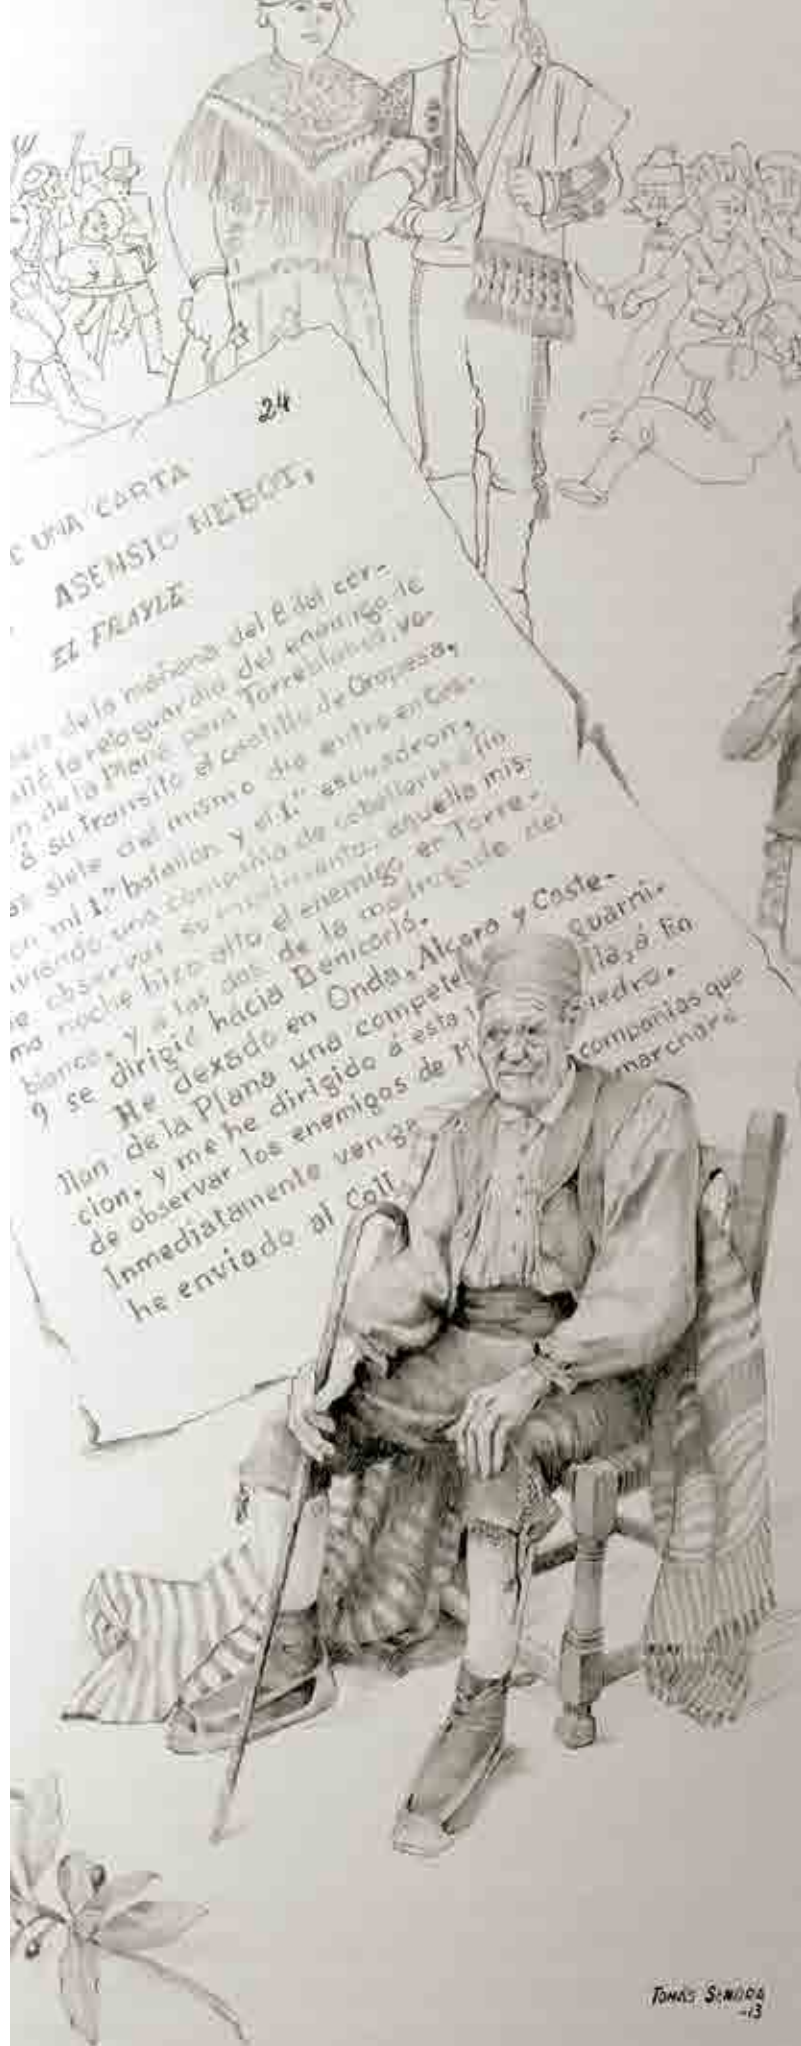 24
E UNA CARTA
ASENSIO NEBOT,
EL FRAYLE
de la mañana del 8 del cor-
la retaguardia del enemigo de
n de la Plana para Torreblanca, vo-
á su transito el castillo de Oropesa,
siete del mismo dia entro en Cas-
mi 1.er batallon y el 1.er escuadron,
una compañia de caballeria á fin
e observar su movimiento. aquella mis-
ma noche hizo alto el enemigo en Torre-
blanca, y a las dos de la madrugada del
9 se dirigió hacia Benicarló.
He dexado en Onda, Alcora y Caste-
llon de la Plana una compete guarni-
cion, y me he dirigido á esta lla, á fin
de observar los enemigos de M
Inmediatamente venga compañias que
he enviado al Coll marchará
TOMÁS
-13